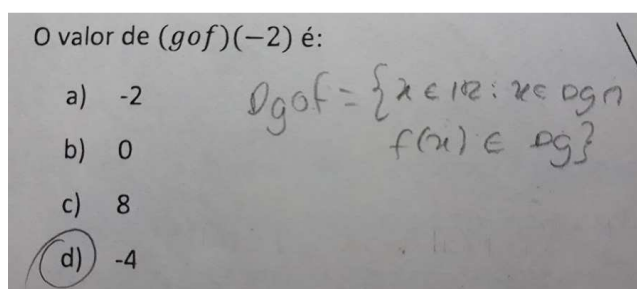 O valor de (gof)(−2) é:
a) -2
b) 0
c) 8
d) -4
Dgof = {x ∈ IR : x ∈ Dg ∩
f(x) ∈ Dg}